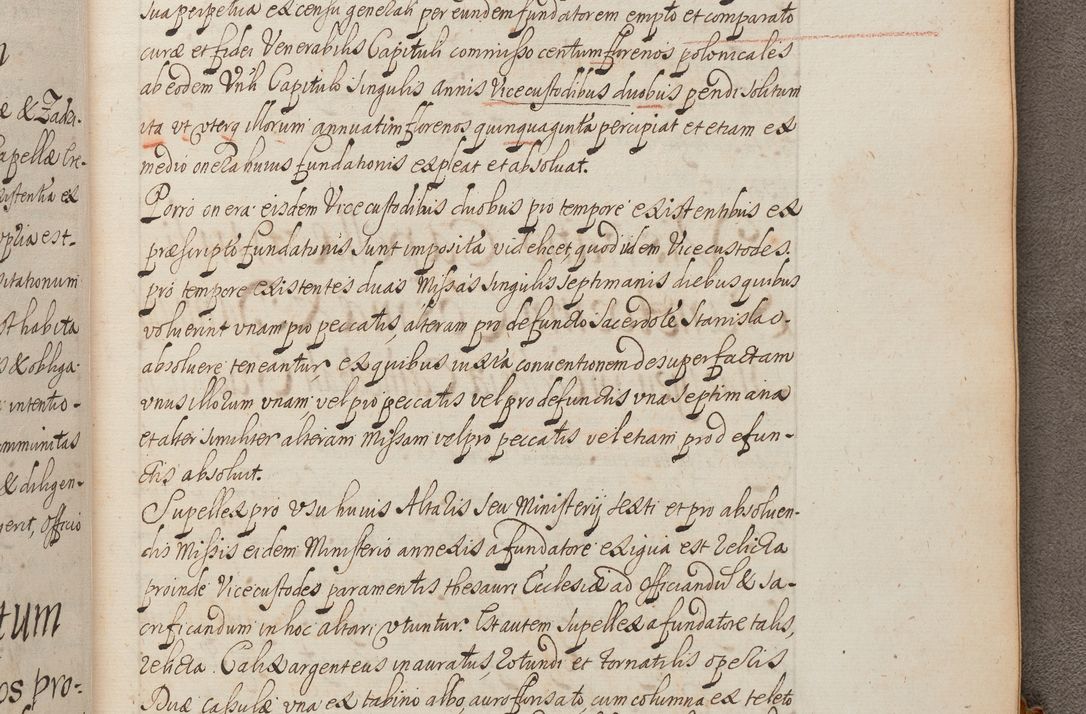 sua perpetua ex censu generali per eundem fundatorem empto et comparato
curæ et fidei Venerabilis Capituli commisso centum florenos polonicales
ab eodem Vnli Capitulo singulis annis Vicecustodibus duobus pendi solitum
ita vt vterq illorum annuatim florenos quinquaginta percipiat et etiam ex
medio onera huius fundationis expleat et absoluat.
Porro onera eisdem Vicecustodibus duobus pro tempore existentibus ex
præscripto fundationis sunt imposita videlicet, quod iidem Vicecustodes
pro tempore existentes duas Missas singulis septimanis diebus quibus
voluerint vnam pro peccatis, alteram pro defuncto sacerdote Stanislao
absoluere teneantur, ex quibus iuxta conventionem desuper factam
vnus illorum vnam vel pro peccatis vel pro defunctis vna septimana
et alter similiter alteram Missam vel pro peccatis vel etiam pro defun-
ctis absoluit.
Supellex pro vsu huius Altaris seu Ministerij sexti et pro absoluen-
dis Missis eidem Ministerio annexis a fundatore exigua est relicta
proinde Vicecustodes paramentis thesauri Ecclesiæ ad officiandum & sa-
crificandum in hoc altari vtuntur. Est autem supellex a fundatore talis,
relicta. Calix argenteus inauratus, rotundi et tornatilis operis
Duæ casulæ vna ex tabino albo, auro flonsato, cum columna ex teleto
æ & Zades-
apellæ Cre-
xistentia ex
uplia est-
sitationum
st habita
s & obliga-
intentio-
ommunitas
& diligen-
gerit, officio
tum
os pro-